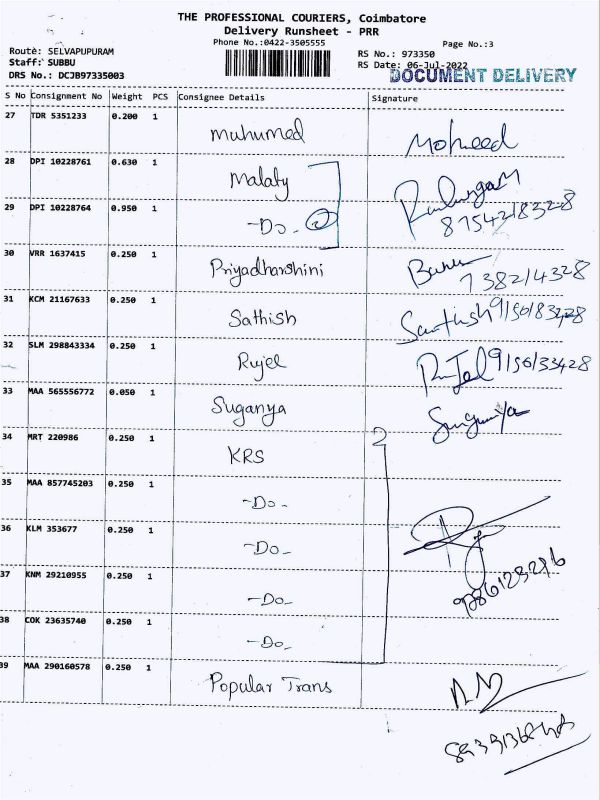 THE PROFESSIONAL COURIERS, Coimbatore
Delivery Runsheet - PRR
Phone No.:0422-3505555
Page No.:3
Route: SELVAPUPURAM
RS No.: 973350
Staff: SUBBU
RS Date: 06-Jul-2022
DRS No.: DCJB97335003
DOCUMENT DELIVERY
S No Consignment No Weight PCS Consignee Details Signature
27 TDR 5351233 0.200 1
Muhumed Moheed
28 DPI 10228761 0.630 1
Malaty
29 DPI 10228764 0.950 1
-Do- 2 87542183228
30 VRR 1637415 0.250 1
Priyadharshini 738214328
31 KCM 21167633 0.250 1
Sathish Santhish
32 SLM 298843334 0.250 1
Rujel 9150133428
33 MAA 565556772 0.050 1
Suganya
34 MRT 220986 0.250 1
KRS
35 MAA 857745203 0.250 1
-Do-
36 KLM 353677 0.250 1
-Do-
37 KNM 29210955 0.250 1
-Do-
38 COK 23635740 0.250 1
-Do-
39 MAA 290160578 0.250 1
Popular Trans